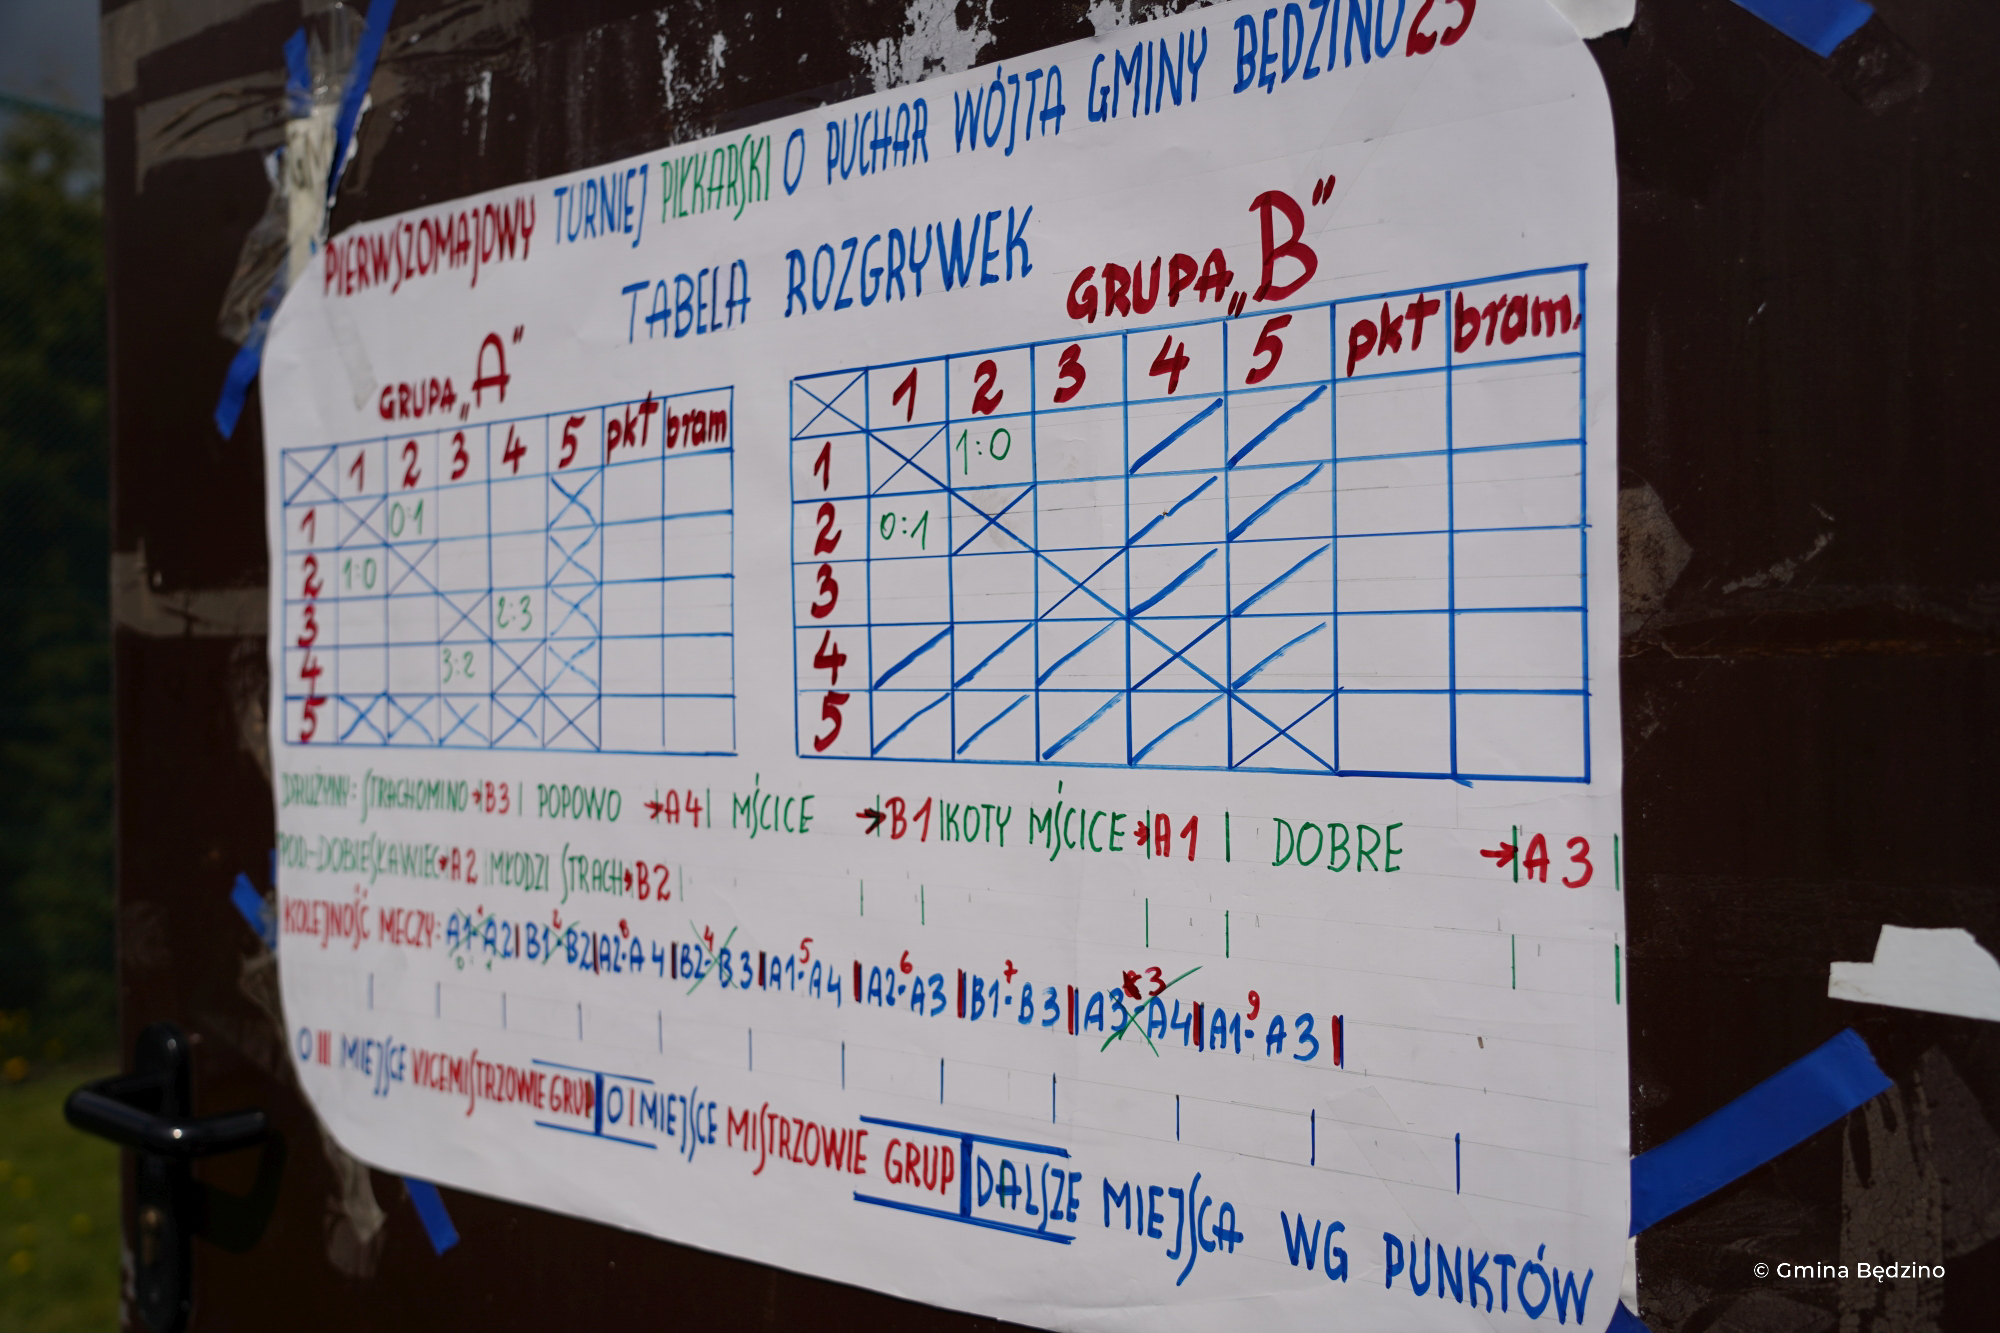 PIERWSZOMAJOWY TURNIEJ PIŁKARSKI O PUCHAR WÓJTA GMINY BĘDZINO 23
TABELA ROZGRYWEK
GRUPA „A”
1 2 3 4 5 pkt bram
1 0:1
2 1:0
3 2:3
4 3:2
5
GRUPA „B”
1 2 3 4 5 pkt bram.
1 1:0
2 0:1
3
4
5
DRUŻYNY: STRACHOMINO → B3 | POPOWO → A4 | MŚCICE → B1 | KOTY MŚCICE → A1 | DOBRE → A3 |
POD-DOBIESŁAWIEC → A2 | MŁODZI STRACH → B2 |
KOLEJNOŚĆ MECZY: A1-A2 | B1-B2 | A2-A4 | B2-B3 | A1-A4 | A2-A3 | B1-B3 | A3-A4 | A1-A3 |
4 5 6 7 3 9
O III MIEJSCE VICEMISTRZOWIE GRUP | O I MIEJSCE MISTRZOWIE GRUP | DALSZE MIEJSCA WG PUNKTÓW
© Gmina Będzino